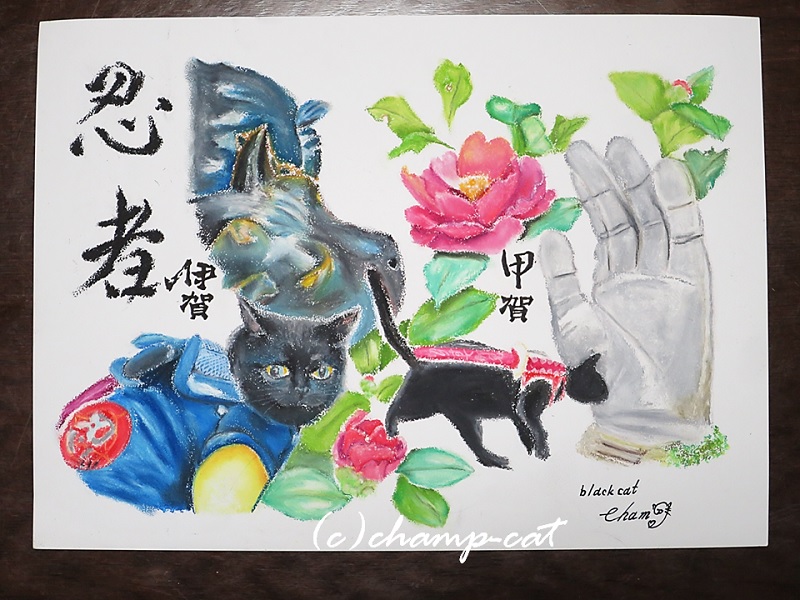 忍者
伊賀
甲賀
black cat
Cham
(c)champ-cat